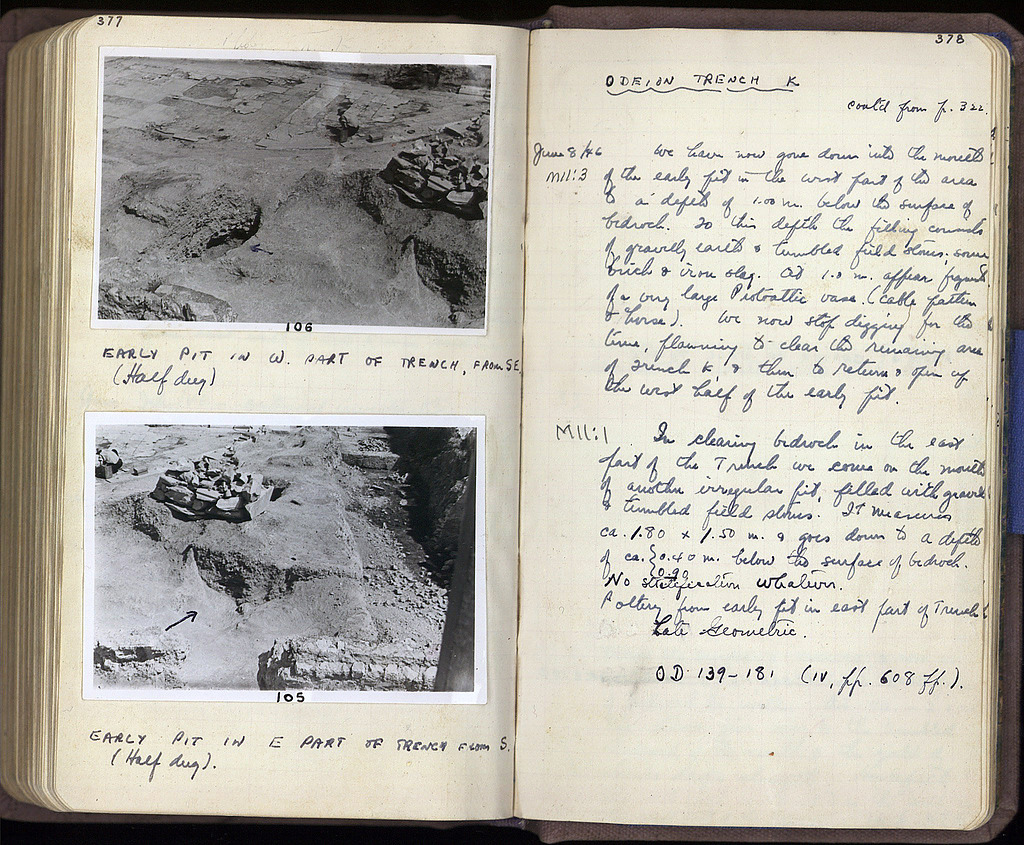 377
106
EARLY PIT IN W. PART OF TRENCH, FROM SE
(Half dug)
105
EARLY PIT IN E PART OF TRENCH FROM S.
(Half dug).
378
ODEION TRENCH K
cont'd from p. 322
June 8/46 We have now gone down into the mouth
M11:3 of the early pit in the west part of the area
to a depth of 1.00 m. below the surface of
bedrock. To this depth the filling consists
of gravelly earth & tumbled field stones; some
brick & iron slag. At 1.0 m. appear fragments
of a very large Protoattic vase. (Cable pattern
& horse). We now stop digging for the
time, planning to clear the remaining area
of Trench K & then to return & open up
the west half of the early pit.
M11:1 In clearing bedrock in the east
part of the Trench we come on the mouth
of another irregular pit, filled with gravel
& tumbled field stones. It measures
ca. 1.80 x 1.50 m. & goes down to a depth
of ca. {0.40 m. below the surface of bedrock.
{0.90
No stratification whatever.
Pottery from early pit in east part of Trench
Late Geometric.
OD 139-181 (IV, pp. 608 ff.).